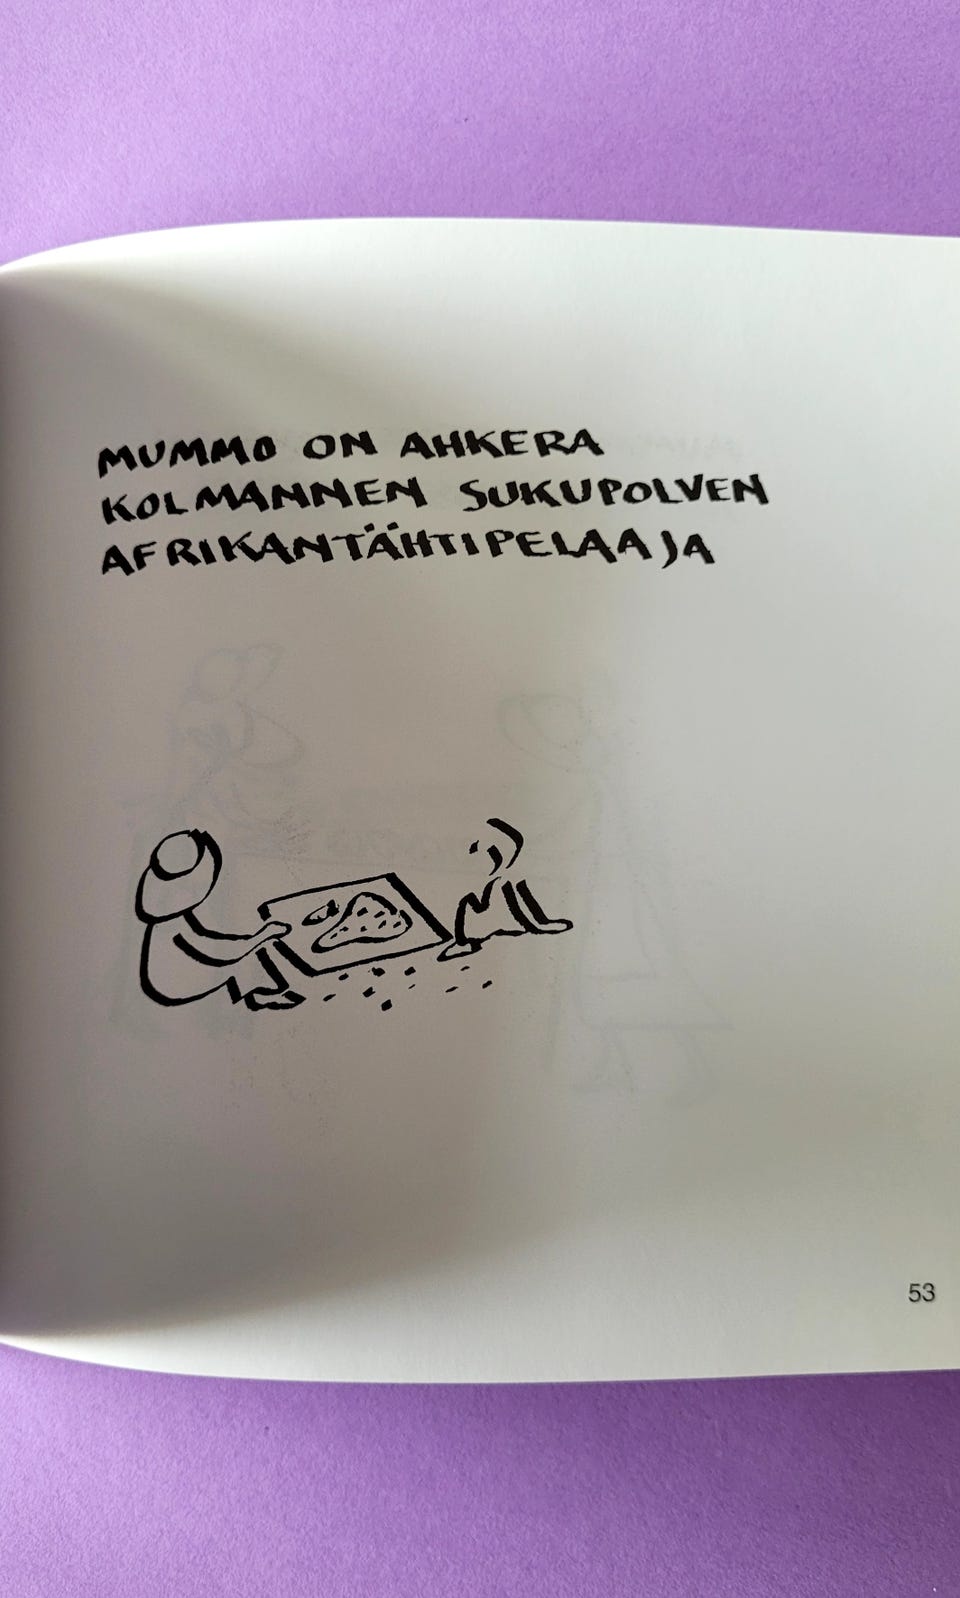 MUMMO ON AHKERA
KOLMANNEN SUKUPOLVEN
AFRIKANTÄHTIPELAAJA
53